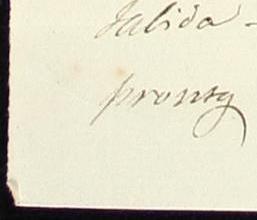 salida -
pronsq